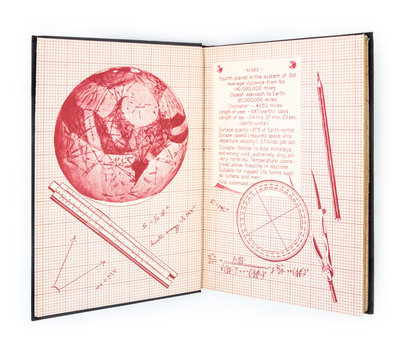 S = ½ at²
m = MV
- MARS -
Fourth planet in the system of Sol
Average distance from Sol
140,000,000 miles
Closest approach to Earth
35,000,000 miles
Diameter - 4250 miles
Length of year - 687 (earth) days
Length of day - 24 hrs. 37 min. 23 sec.
(earth units)
Surface gravity - 37% of Earth normal
Escape speed (required space ship
departure velocity) 3.1 miles per sec.
Climate - Similar to Alta Himalaya,
extremely cold, extremely dry, air
very rarefied. Temperature some-
times above freezing in daytime.
Suitable for rugged life forms such
as lichens and men.
First colonized
E = MC²